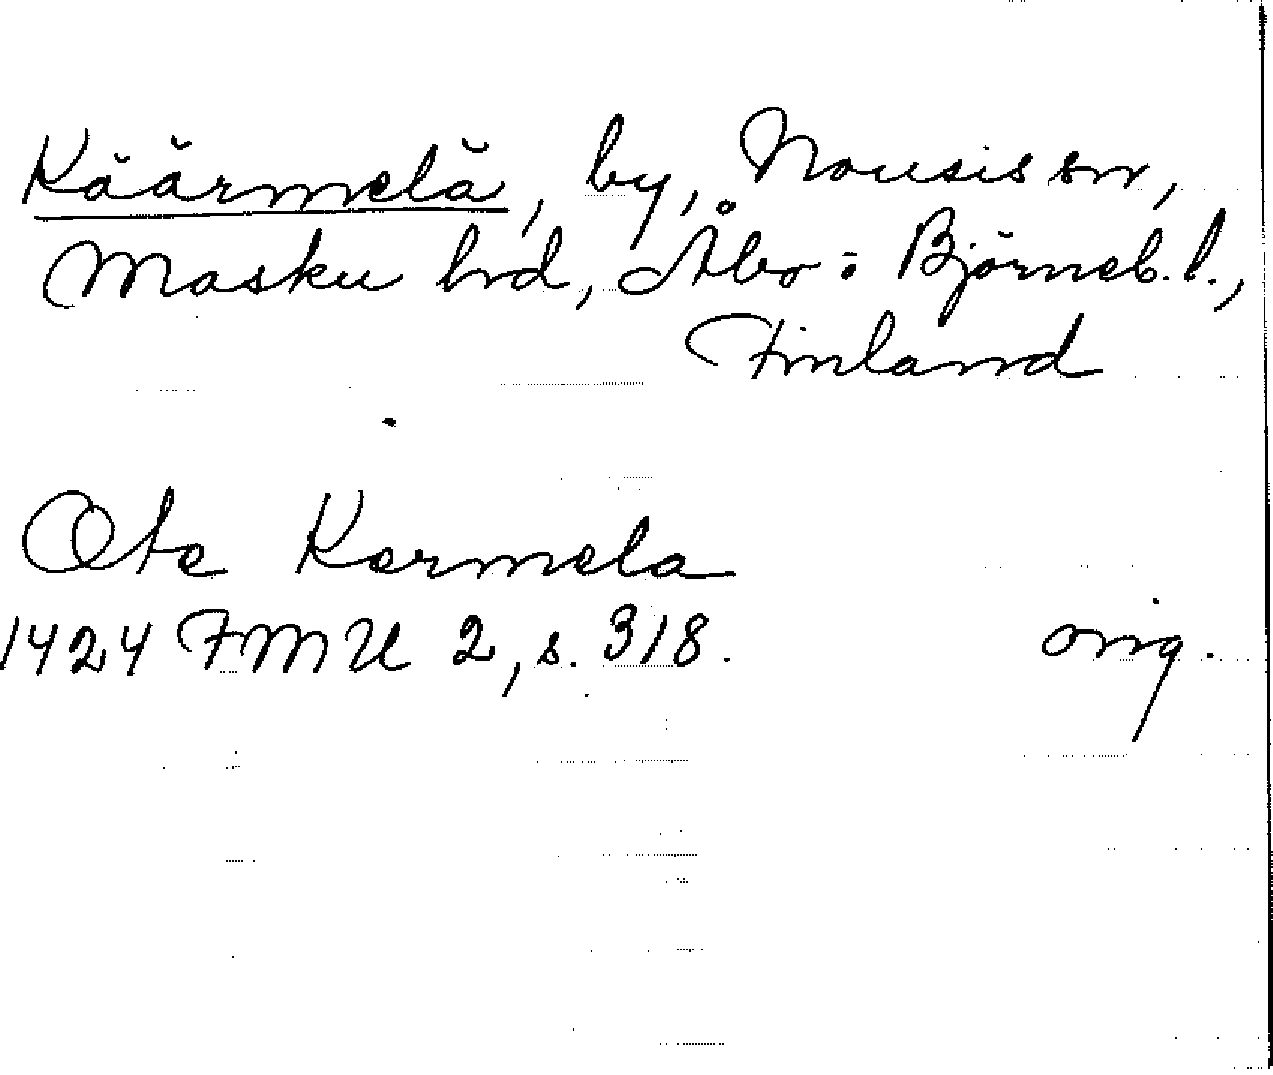 Käärmelä, by, Nousis sn,
Masku hd, Åbo o Björneb. l.,
Finland
Ote Kermela
1424 FMU 2, s. 318. orig.